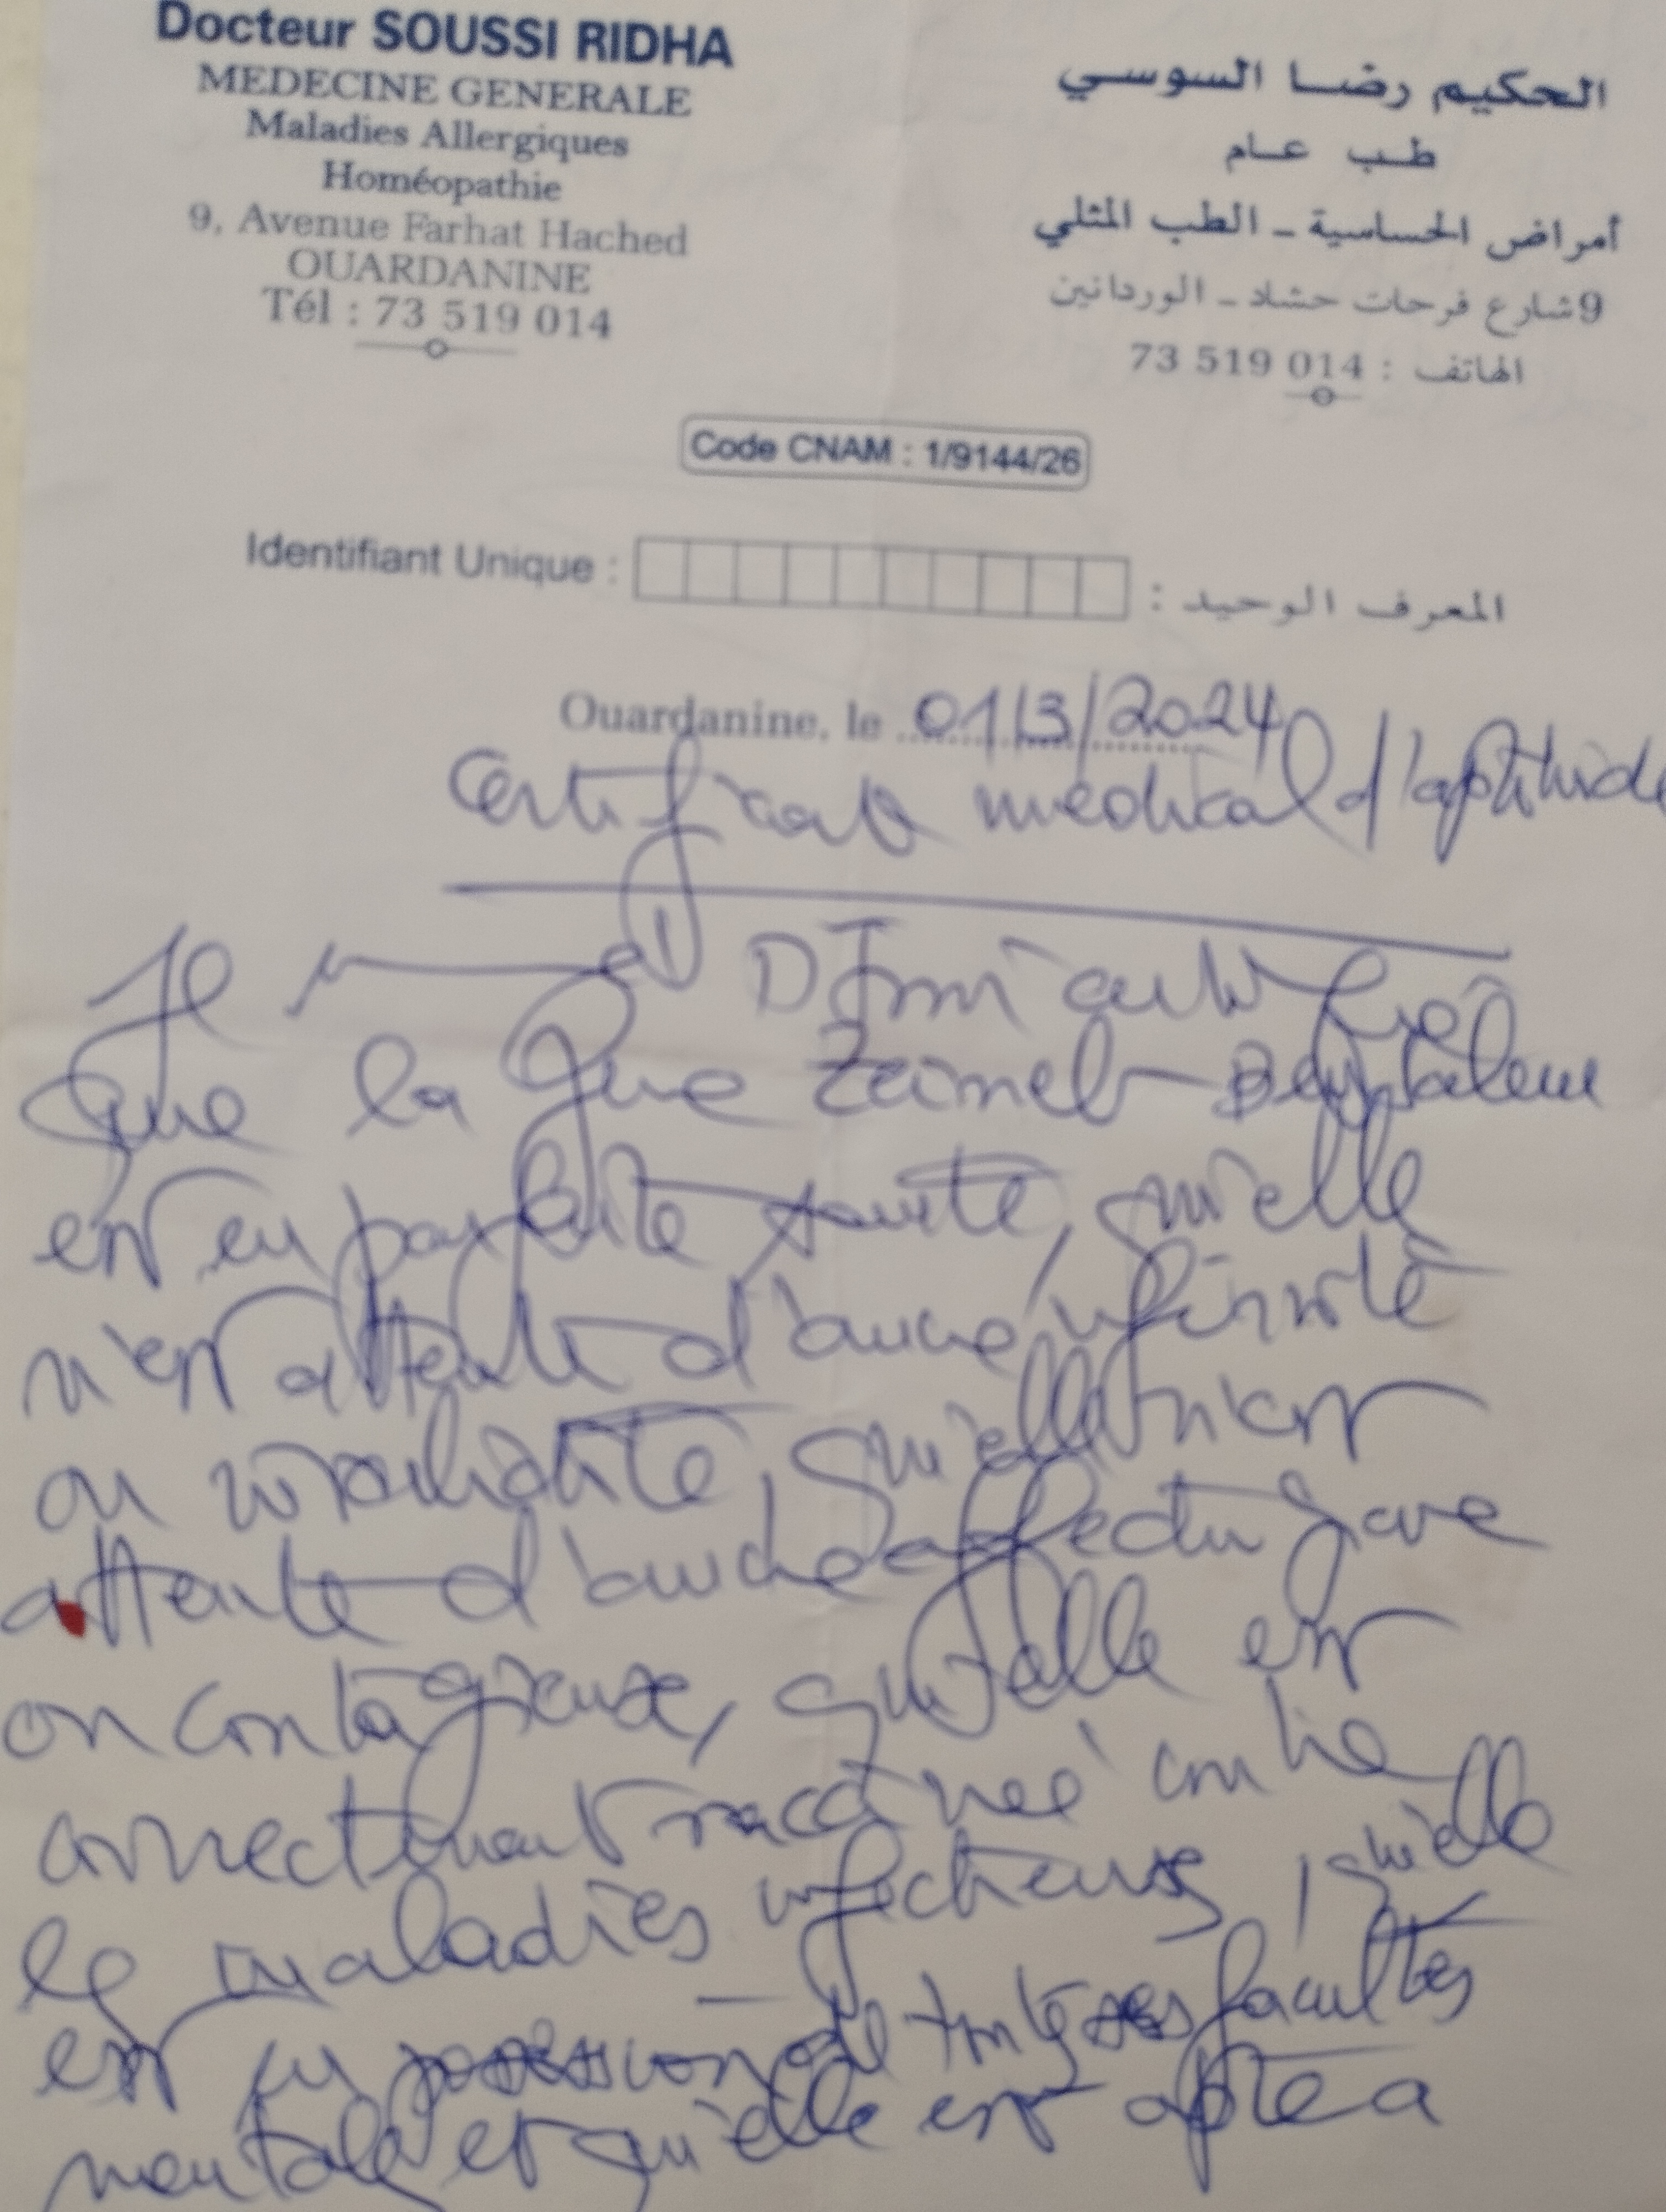 Docteur SOUSSI RIDHA
MEDECINE GENERALE
Maladies Allergiques
Homéopathie
9, Avenue Farhat Hached
OUARDANINE
Tél : 73 519 014
الحكيم رضا السوسي
طب عام
أمراض الحساسية - الطب المثلي
9 شارع فرحات حشاد - الوردانين
الهاتف : 014 519 73
Code CNAM : 1/9144/26
Identifiant Unique :
المعرف الوحيد :
Ouardanine, le 01/3/2024
Certificat médical d'aptitude
Je
que la Zeineb
est en parfaite santé, qu'elle
n'est atteinte d'aucune infirmité
ou invalidité, qu'elle n'est
atteinte d'aucune affection grave
ou contagieuse, qu'elle est
correctement vaccinée contre
les maladies infectieuses, qu'elle
est en possession de toutes ses facultés
mentales et qu'elle est apte a